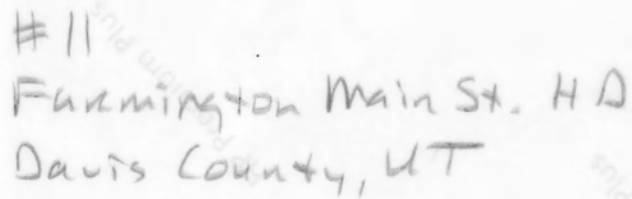 #11
Farmington Main St. HD
Davis County, UT